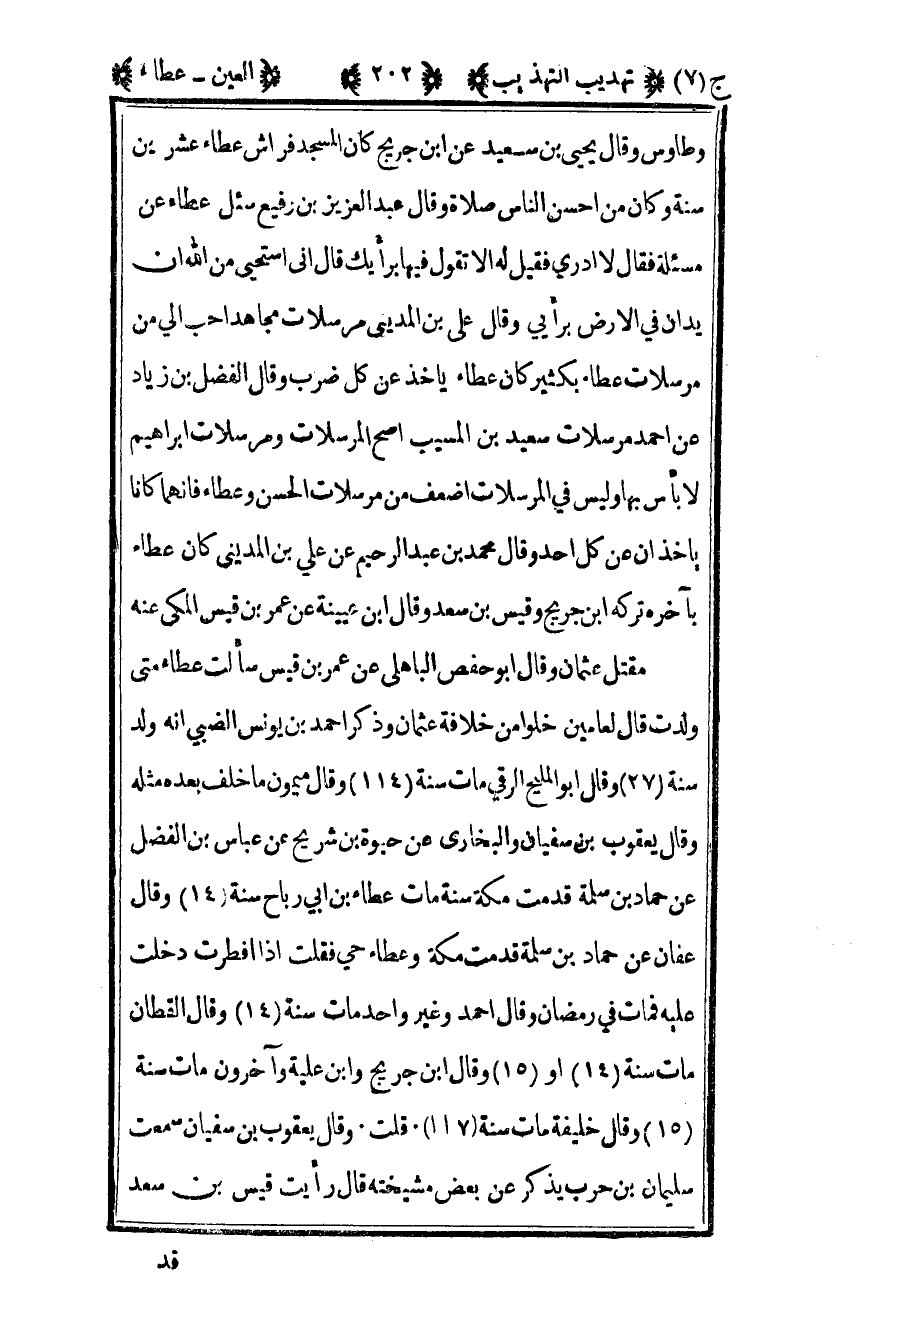 ج (٧) تهذيب التهذيب ٢٠٢ العين - عطاء
وطاوس وقال يحيى بن سعيد عن ابن جريج كان المسجد فراش عطاء عشرين
سنة وكان من احسن الناس صلاة وقال عبد العزيز بن رفيع سئل عطاء عن
مسئلة فقال لا ادري فقيل له الا تقول فيها برأيك قال انى استحيى من الله ان
يدان في الارض برأيي وقال على بن المدينى مرسلات مجاهد احب الي من
مرسلات عطاء بكثير كان عطاء ياخذ عن كل ضرب وقال الفضل بن زياد
عن احمد مرسلات سعيد بن المسيب اصح المرسلات ومرسلات ابراهيم
لا بأس بها وليس في المرسلات اضعف من مرسلات الحسن وعطاء فانهما كانا
ياخذان عن كل احد وقال محمد بن عبد الرحيم عن علي بن المديني كان عطاء
بآخره تركه ابن جريج وقيس بن سعد وقال ابن عيينة عن عمر بن قيس المكى عنه
مقتل عثمان وقال ابو حفص الباهلى عن عمر بن قيس سألت عطاء متى
ولدت قال لعامين خلوا من خلافة عثمان وذكر احمد بن يونس الضبي انه ولد
سنة (٢٧) وقال ابو المليح الرقي مات سنة (١١٤) وقال ميمون ما خلف بعده مثله
وقال يعقوب بن سفيان والبخارى عن حبوة بن شريح عن عباس بن الفضل
عن حماد بن سلمة قدمت مكة سنة مات عطاء بن ابي رباح سنة (١٤) وقال
عفان عن حماد بن سلمة قدمت مكة وعطاء حي فقلت اذا افطرت دخلت
عليه فمات في رمضان وقال احمد وغير واحد مات سنة (١٤) وقال القطان
مات سنة (١٤) او (١٥) وقال ابن جريج وابن علية وآخرون مات سنة
(١٥) وقال خليفة مات سنة (١١٧). قلت. وقال يعقوب بن سفيان سمعت
سليمان بن حرب يذكر عن بعض مشيخته قال رأيت قيس بن سعد
قد